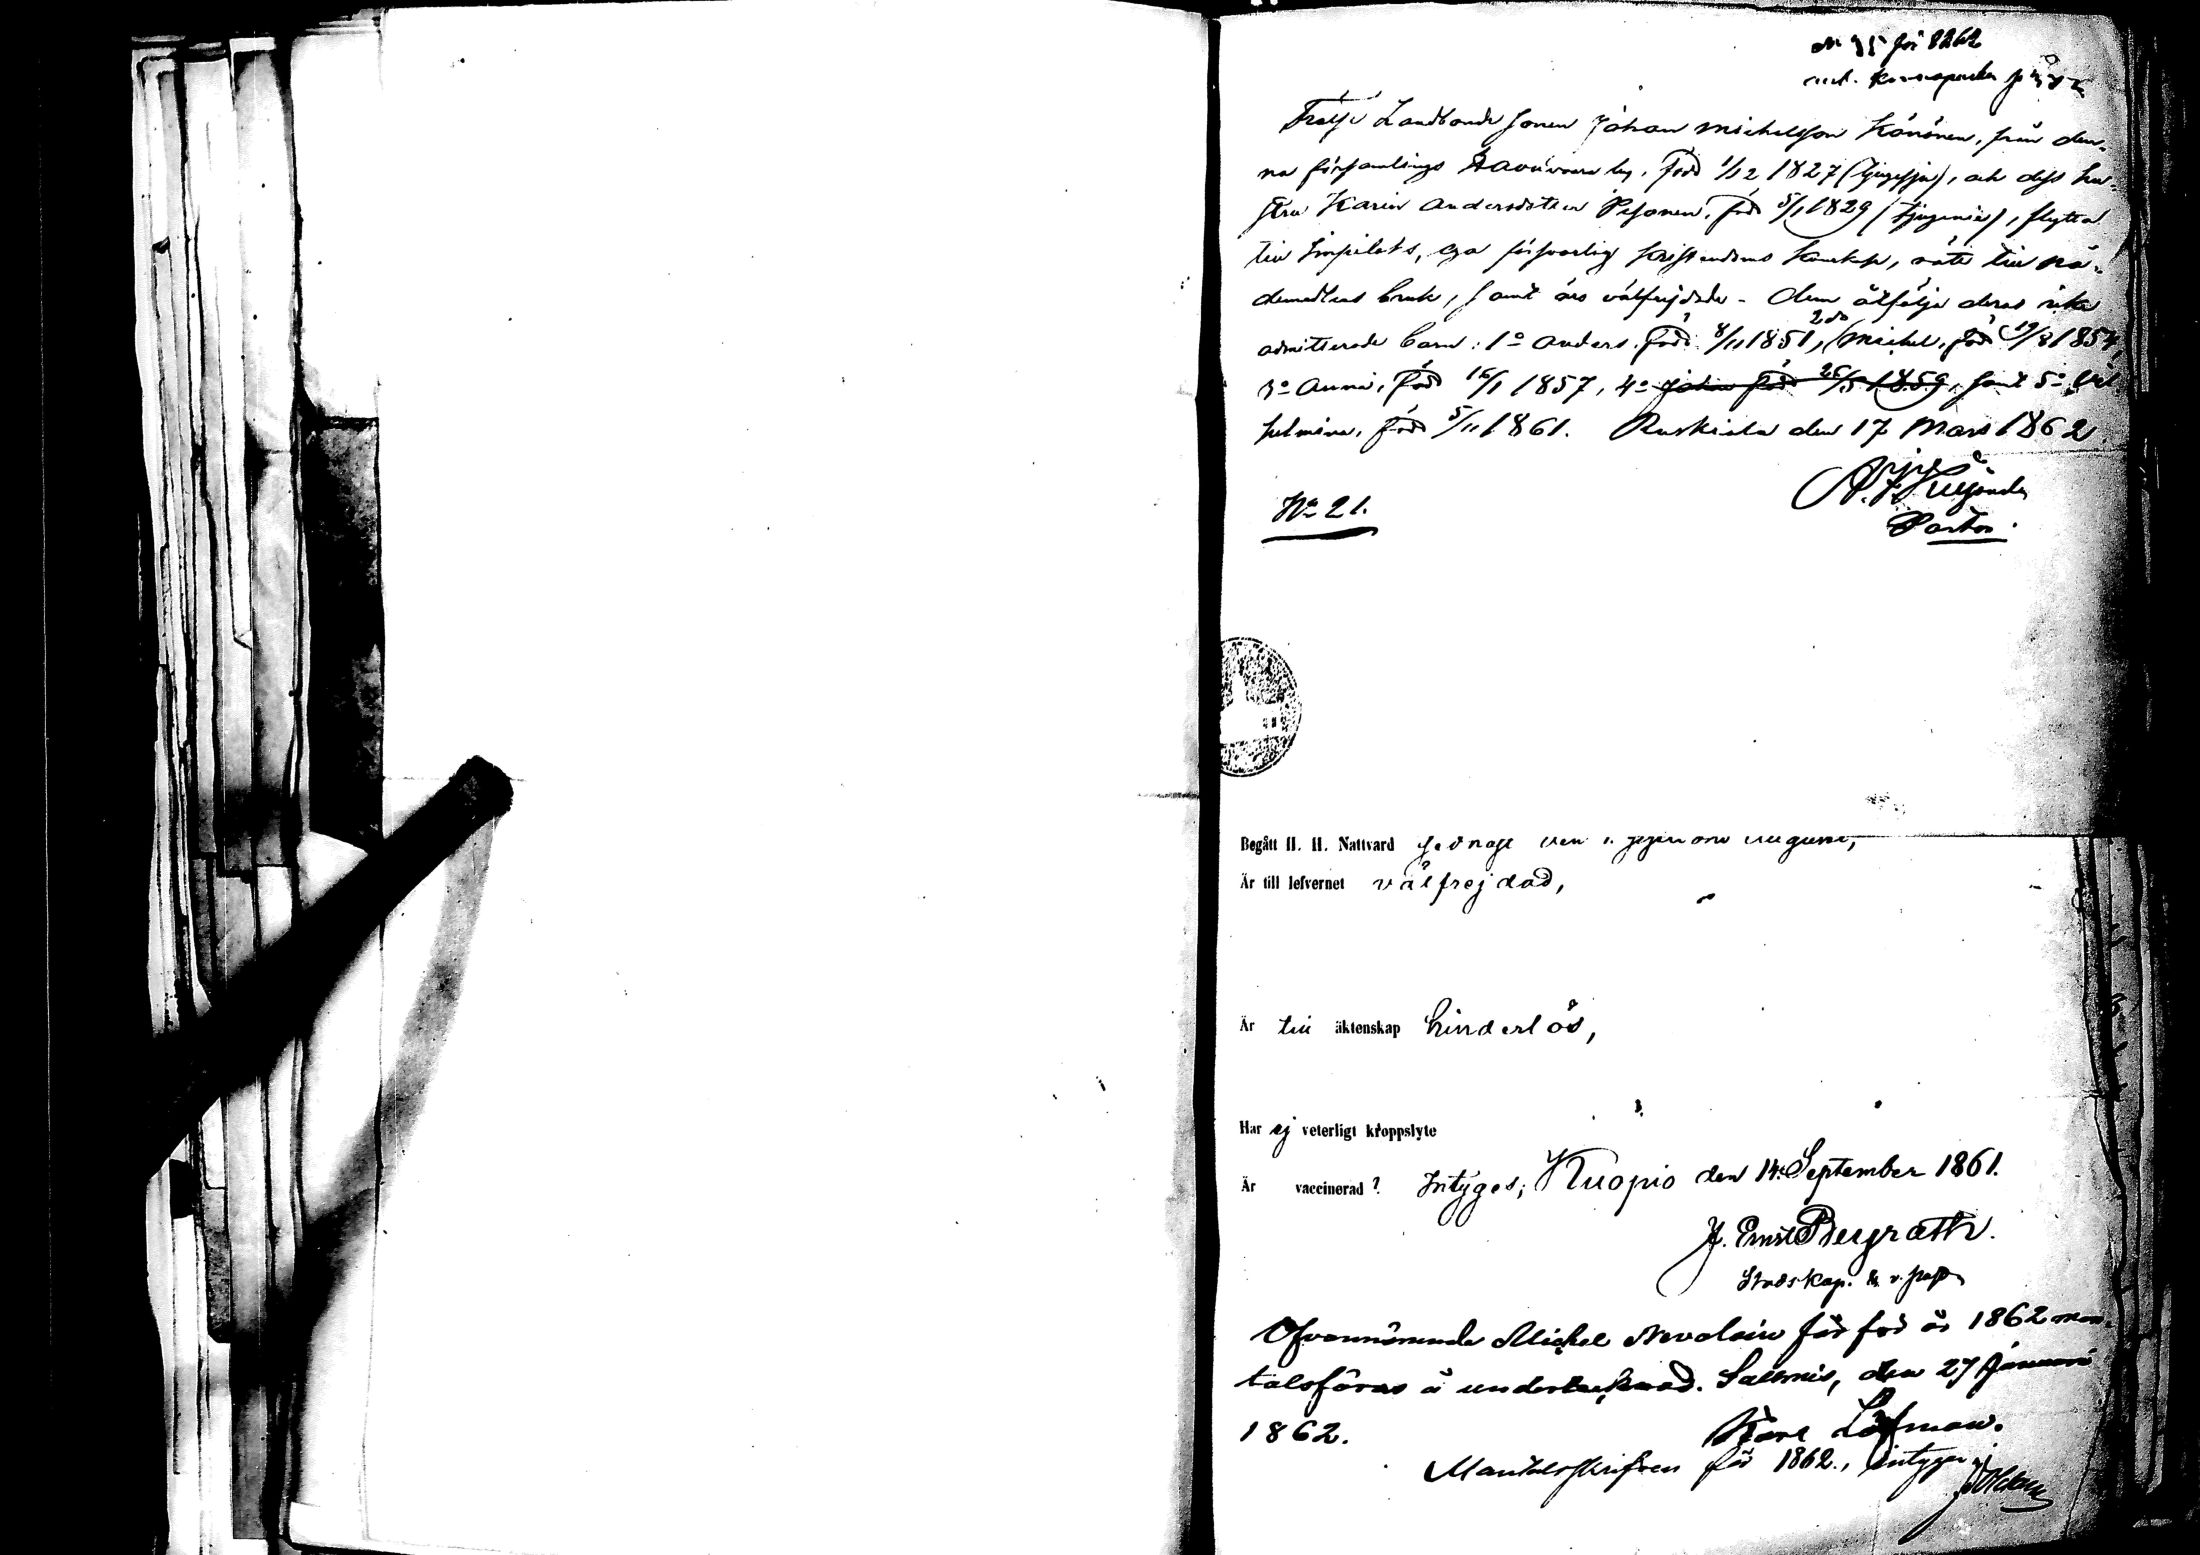 för 1862
Frälse Landbonde sonen Johan Michelsson Könönen, från den-
na församlings by, född 1/12 1827 (tjugesju), och dess hu-
stru Karin Andersdotter Pesonen, född 5/1 1829 (tjugenio), flytta
till Impilaks, ega försvarlig kristendoms kunskap, rätt till nå-
demedlens bruk, samt äro välfrejdade. Dem åtfölja deras icke
admitterade barn: 1o Anders, född 8/11 1851, 2do Michel, född 19/3 1854,
3o Anna, född 16/1 1857, 4o Johan född 26/5 1859, samt 5o Vil
helmina, född 5/11 1861. Ruskiala den 17 Mars 1862.
Pastor.
No 21.
Begått H. H. Nattvard
Är till lefvernet välfrejdad,
Är till äktenskap hinderlös,
Har ej veterligt kroppslyte
Är vaccinerad? Intygas; Kuopio den 14 September 1861.
J. Ernst Bergroth.
Stadskap. & v. past
Ofvannämnde Michel Nevalain får för år 1862 man-
talsföras å undertecknad. Salmis, den 27 Januari
1862.
Karl Löfman.
Mantalsskrifven för 1862., intygar